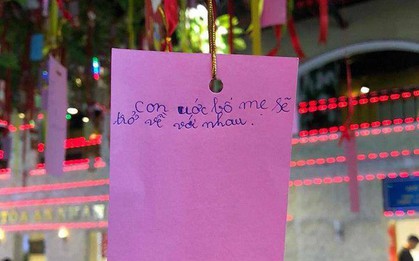 con ước bố mẹ sẽ
trở về với nhau!